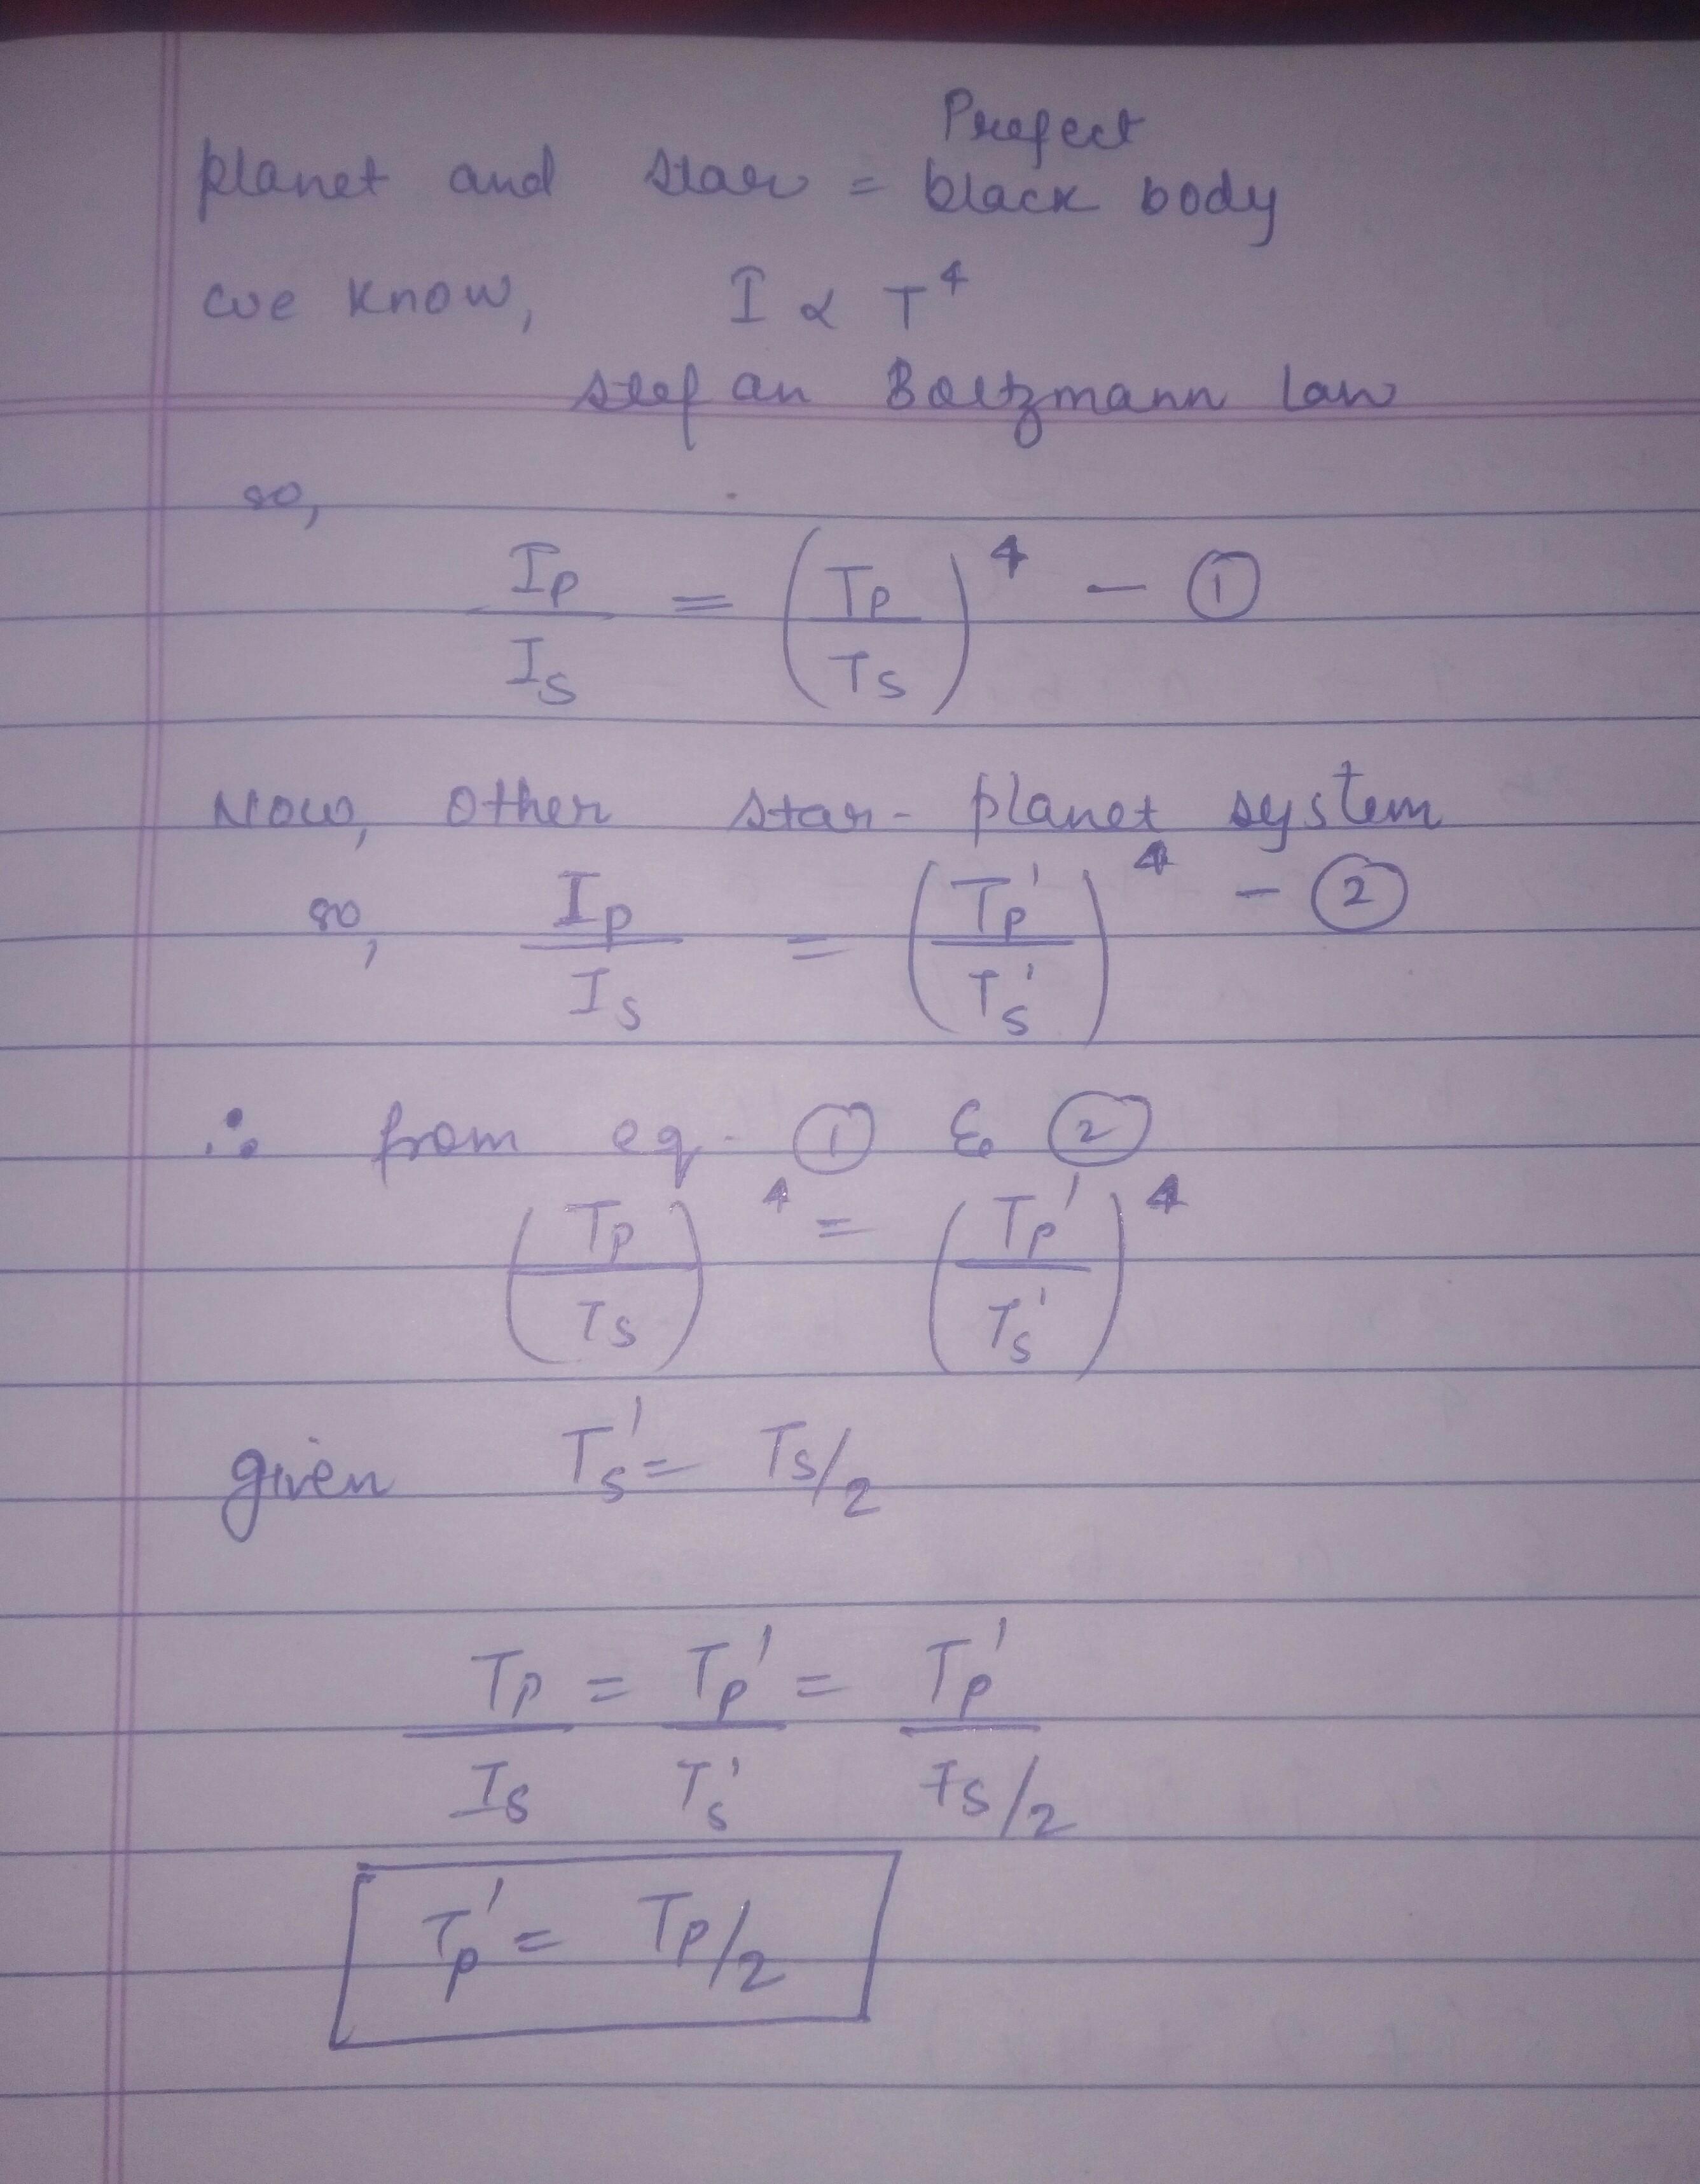 Prefect
planet and star = black body
we know, I ∝ T⁴
stefan Boltzmann law
so,
I_P / I_S = (T_P / T_S)⁴ — ①
Now, other star-planet system
so, I_P / I_S = (T_P' / T_S')⁴ — ②
∴ from eq. ① & ②
(T_P / T_S)⁴ = (T_P' / T_S')⁴
given T_S' = T_S/2
T_P / I_S = T_P' / T_S' = T_P' / T_S/2
T_P' = T_P/2